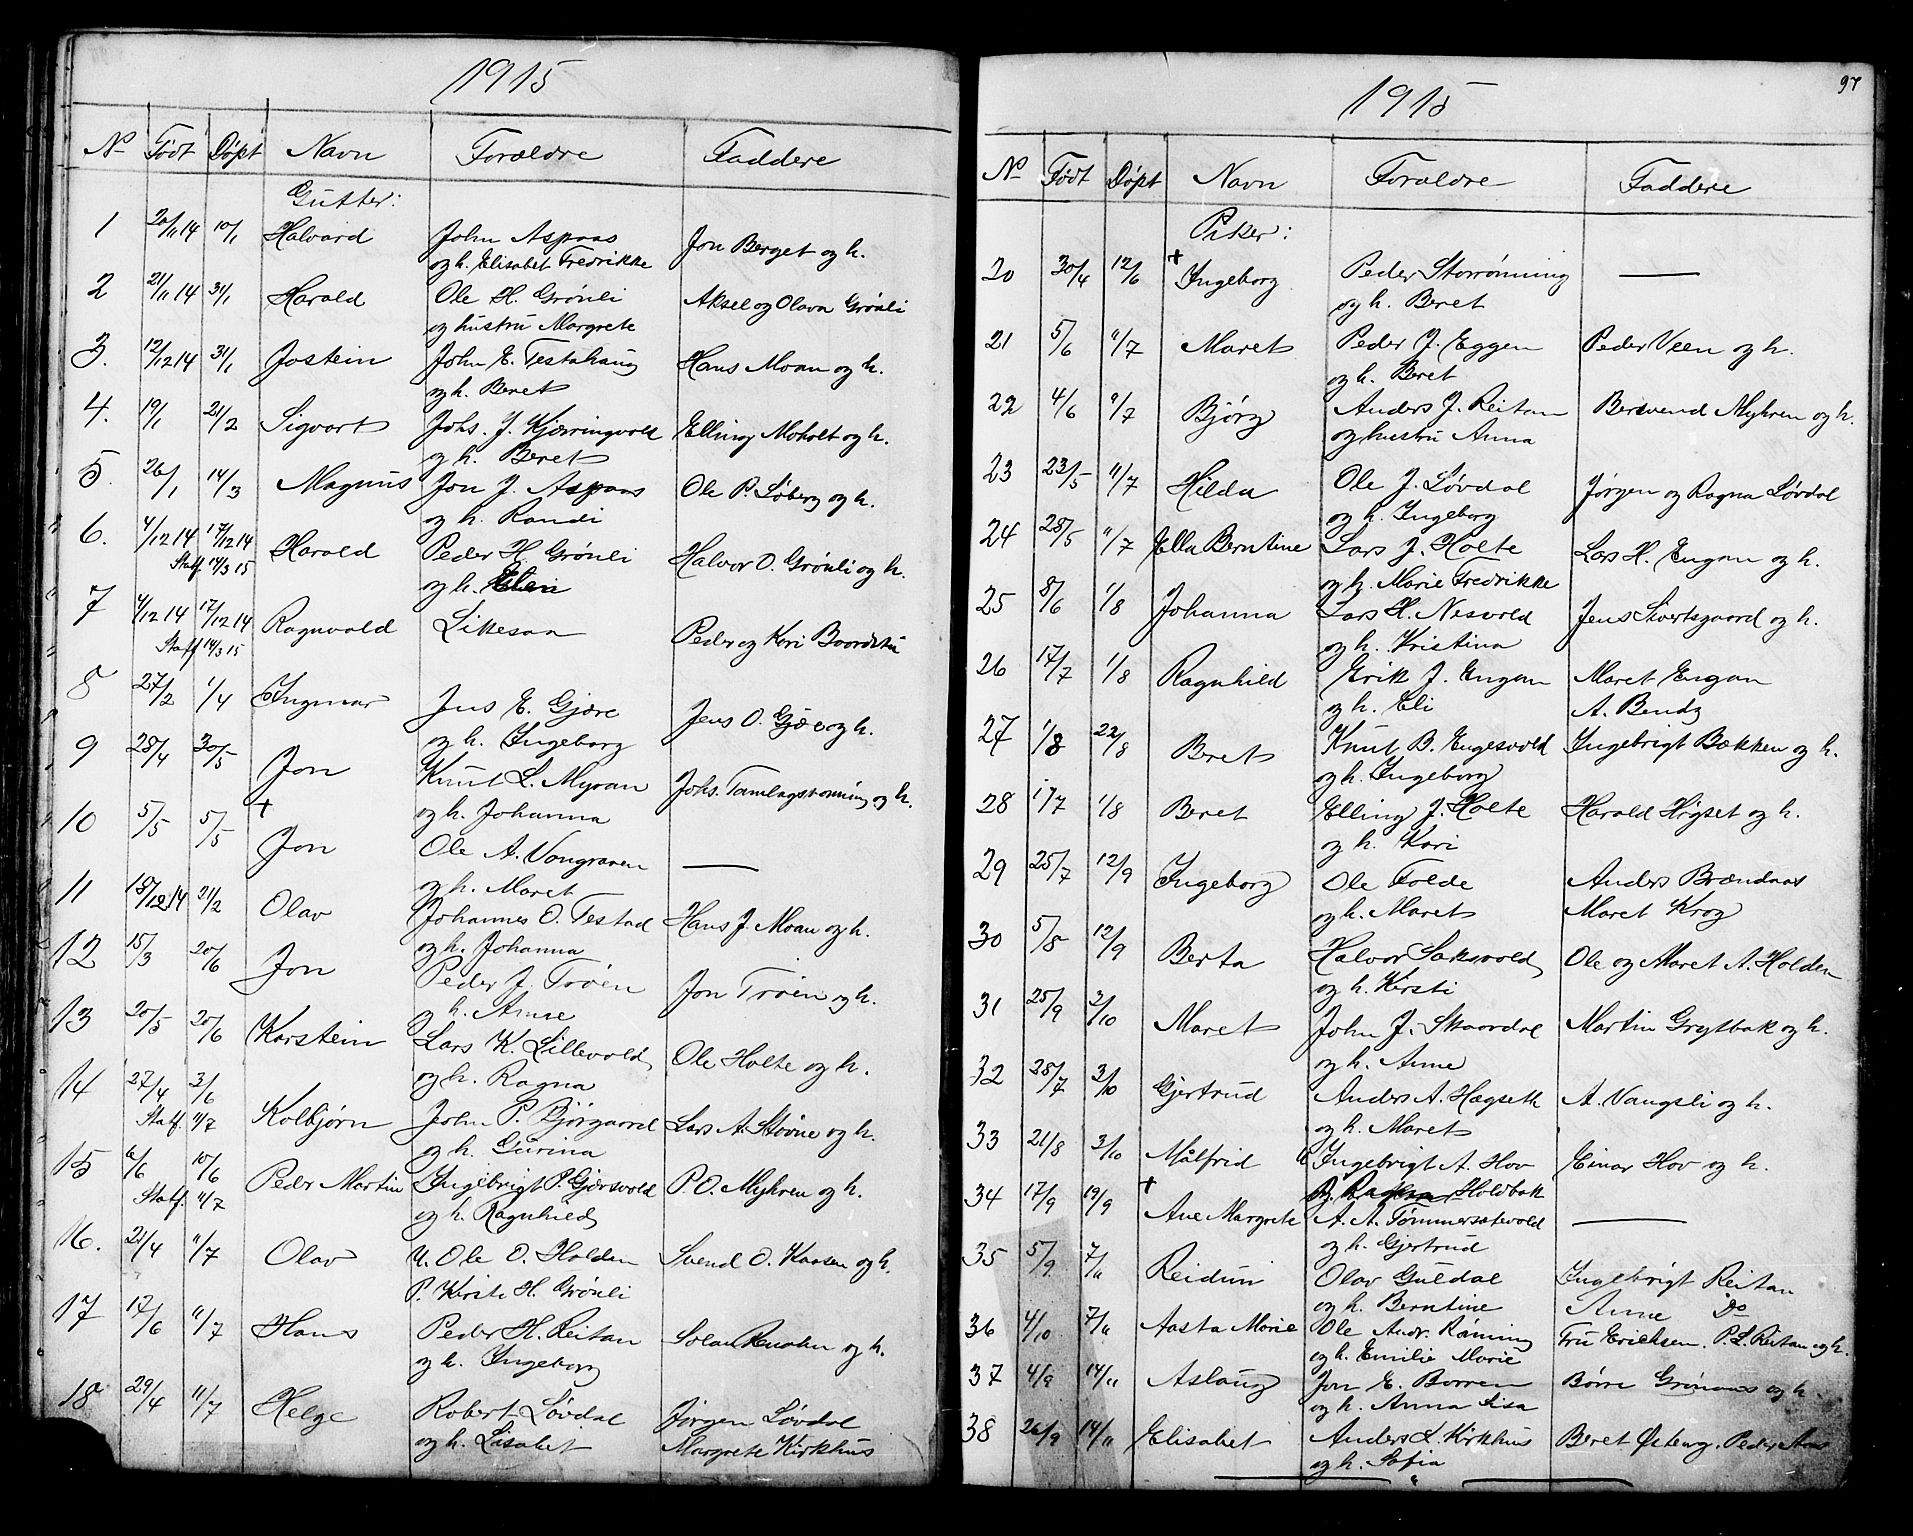 1915
No Födt Döpt Navn Forældre Faddere
Gutter:
1 20/11 14 10/1 Halvard John Aspaas Jon Berget og h.
og h. Elisabet Fredrikke
2 21/11 14 31/1 Harald Ole H. Grönli Aksel og Olava Grönli
og hustru Margrete
3. 12/12 14 31/1 Jostein John E. Testahaug Hans Moan og h.
og h. Beret
4. 19/1 21/2 Sigvart Johs. J. Kjærringvold Elling Moholt og h.
og h. Beret
5. 26/1 14/3 Magnus Jon J. Aspaas Ole P. Löberg og h.
og h. Randi
6. 4/12 14 17/12 14 Harald Peder H. Grönli Halvor O. Grönli og h.
Staf. 14/3 15 og h. Elen
7 4/12 14 17/12 14 Ragnvald Likesaa Peder og Kari Baardstu
Staf. 14/3 15
8 27/2 1/4 Ingmar Jens E. Gjære Jens O. Gjære og h.
og h. Ingeborg
9 28/4 30/5 Jon Knut L. Myran Johs. Tamlagströnning og h.
og h. Johanna
10 5/5 5/5 + Jon Ole A. Vongraven —
og h. Maret
11 18/12 14 21/2 Olav Johannes O. Testad Hans J. Moan og h.
og h. Johanna
12 15/3 20/6 Jon Peder J. Tröen Jon Tröen og h.
h. Anne
13 20/5 20/6 Karstein Lars K. Lillevold Ole Holte og h.
og h. Ragna
14 27/4 3/6 Kolbjörn John P. Bjørgaard Lars A. Stövne og h.
Staf. 11/7 og h. Gurina
15 6/6 10/6 Peder Martin Ingebrigt P. Gjersvold P. O. Myhren og h.
Staf. 11/7 og h. Ragnhild
16. 21/4 11/7 Olav U. Ole O. Holden Svend O. Kaasen og h.
P. Kirsti H. Grönli
17 17/6 11/7 Hans Peder H. Reitan og h.
og h. Ingeborg
18 29/4 11/7 Helge Robert Lövdal Jørgen Lövdal
og h. Lisabet Margrete Kirkhus
97
1915
No Födt Döpt Navn Forældre Faddere
Piker:
20 30/4 12/6 + Ingeborg Peder Storrönning —
og h. Beret
21 5/6 11/7 Maret Peder J. Eggen Peder Veen og h.
og h. Beret
22 4/6 11/7 Björg Anders J. Reitan Bersvend Myhren og h.
og hustru Anna
23 23/5 11/7 Hilda Ole J. Lövdal Jørgen og Ragna Lövdal
og h. Ingeborg
24 28/5 11/7 Ella Berntine Lars J. Holte Lars H. Engan og h.
og h. Marie Fredrikke
25 8/6 1/8 Johanna Lars H. Nesvold Jens Svartsgaard og h.
og h. Kristina
26 17/7 1/8 Ragnhild Erik J. Engan Maret Engan
og h. Eli A. Bendz
27 1/8 22/8 Beret Knut B. Engesvold Ingebrigt Bækken og h.
og h. Ingeborg
28 17/7 1/8 Beret Elling J. Holte Harald Högset og h.
og h. Kari
29 25/7 12/9 Ingeborg Ole Folde Anders Brændaas
og h. Maret Maret Krog
30 5/8 12/9 Berta Halvor Saksvold Ole og Maret A. Holden
og h. Kirsti
31 25/9 3/10 Maret John J. Skaardal Martin Grytbak og h.
og h. Anne
32 28/7 3/10 Gjertrud Anders A. Hægseth A. Vangsli og h.
og h. Maret
33 21/8 3/10 Målfrid U. Ingebrigt A. Hov Einar Hov og h.
P. Ragna Holdbak
34 17/9 19/9 + Ane Margrete A. A. Tømmersætvold —
og h. Gjertrud
35 5/9 7/11 Reidun Olav Guldal Ingebrigt Reitan
og h. Berntine Anne Do
36 4/10 7/11 Aasta Marie Ole Andr. Rönning Fru Ericksen. P. L. Reitan og h.
og h. Emilie Marie
37 4/9 14/11 Aslaug Jon E. Borren Börre Grönaas og h.
og h. Anna Lisa
38 26/9 14/11 Elisabet Anders L. Kirkhus Beret Østeng. Peder Aas
og h. Sofia